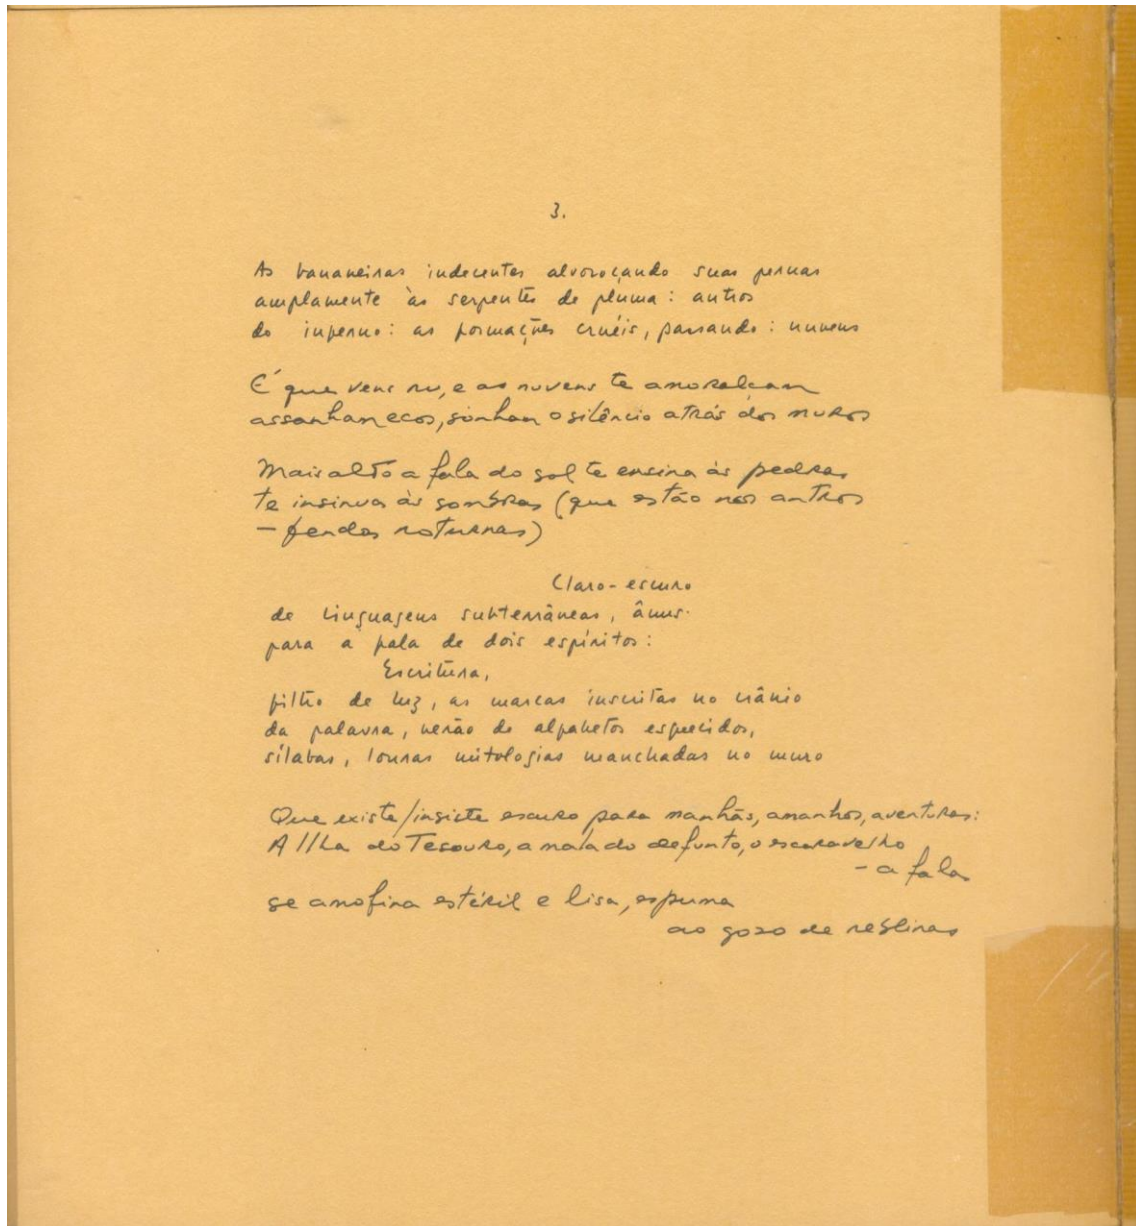 3.
As bananeiras indecentes alvoroçando suas pernas
amplamente às serpentes de pluma: antros
do inferno: as formações cruéis, passando: nuvens
É que vens nu, e as nuvens te amordaçam
assanham ecos, sonham o silêncio atrás dos muros
Mais alto a fala do sol te ensina às pedras
te insinua às sombras (que estão nos antros
– fendas noturnas)
Claro-escuro
de linguagens subterrâneas, ânus
para a fala de dois espíritos:
Escritura,
filho de luz, as marcas inscritas no crânio
da palavra, verão de alfabetos esquecidos,
sílabas, louras mitologias manchadas no muro
Que existe/insiste escuro para manhãs, amanhos, aventuras:
A Ilha do Tesouro, a mala do defunto, o escaravelho
– a fala
se amofina estéril e lisa, espuma
ao gozo de neblinas